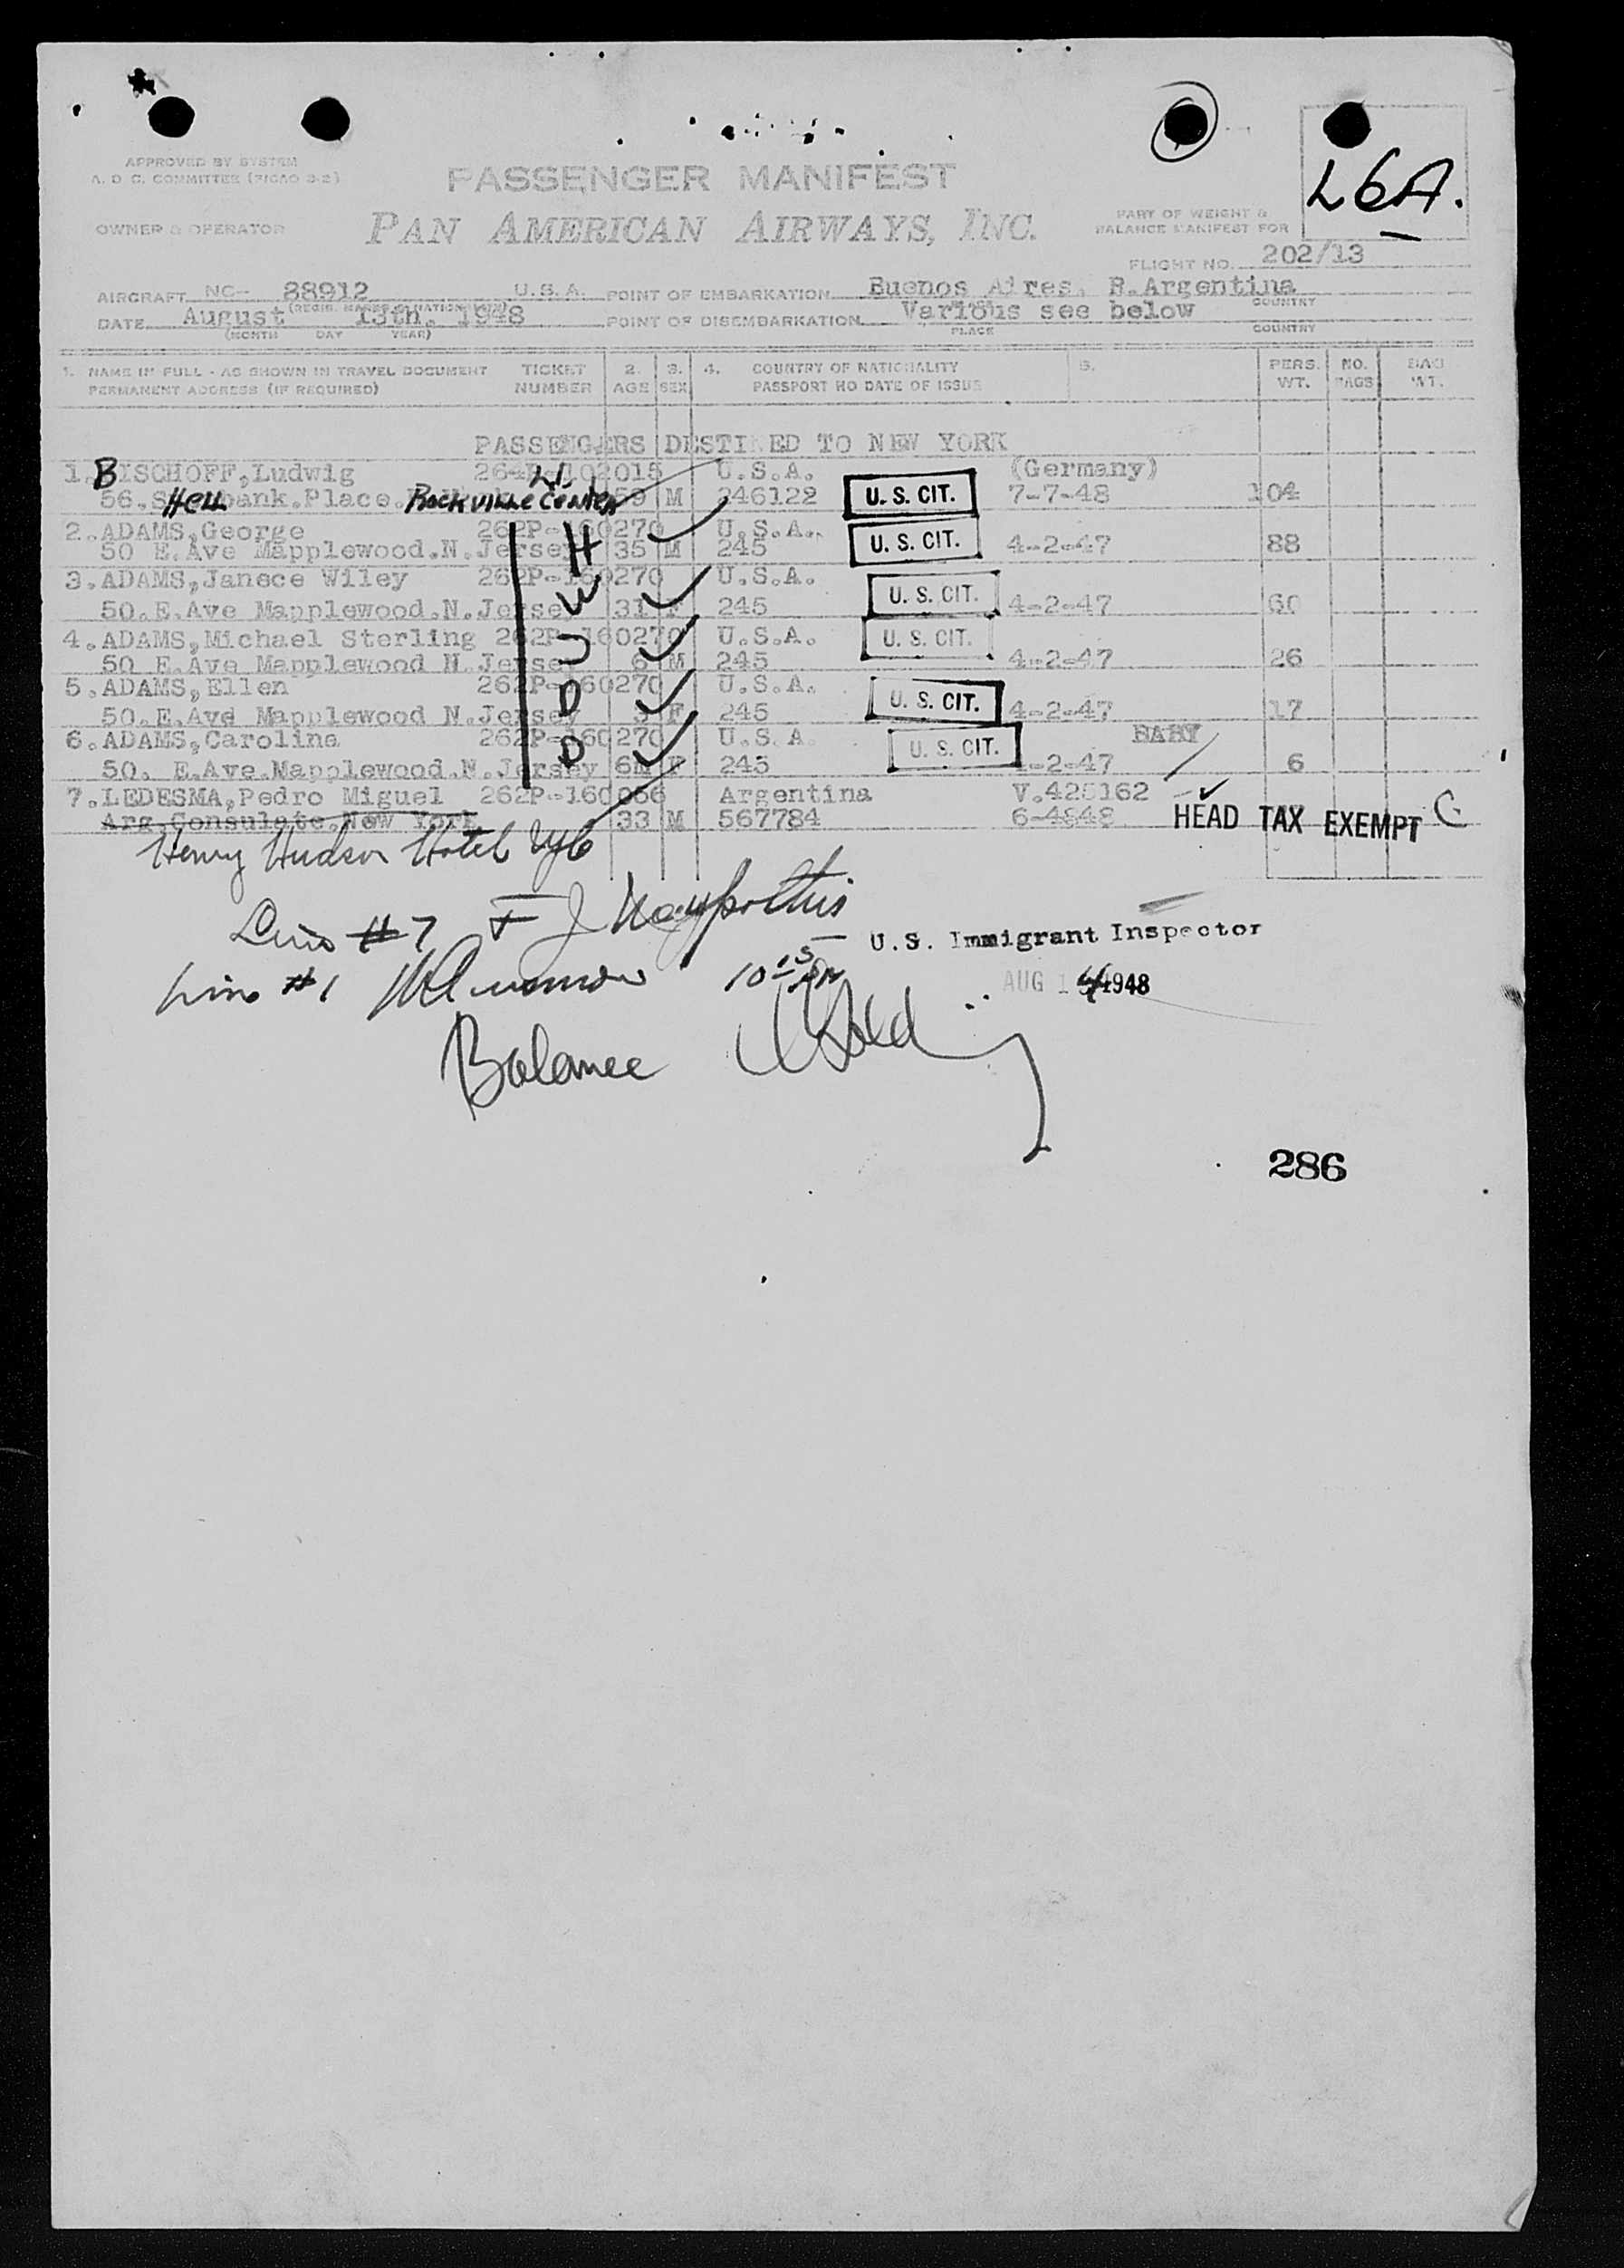 APPROVED BY SYSTEM
A. D. C. COMMITTEE (PICAO 3-2)
PASSENGER MANIFEST
L6A.
OWNER & OPERATOR
PAN AMERICAN AIRWAYS, INC.
PART OF WEIGHT &
BALANCE MANIFEST FOR
FLIGHT NO. 202/13
AIRCRAFT NC- 88912 U.S.A. POINT OF EMBARKATION Buenos Aires. R.Argentina
PLACE COUNTRY
DATE August 13th. 1948 POINT OF DISEMBARKATION Various see below
(MONTH DAY YEAR) PLACE COUNTRY
1. NAME IN FULL - AS SHOWN IN TRAVEL DOCUMENT TICKET 2. 3. 4. COUNTRY OF NATIONALITY 5. PERS. NO. BAG
PERMANENT ADDRESS (IF REQUIRED) NUMBER AGE SEX PASSPORT NO DATE OF ISSUE WT. PAGS WT.
PASSENGERS DESTINED TO NEW YORK
1. BISCHOFF,Ludwig 264P-102015 U.S.A. (Germany)
56. bank.Place. Rockville Center L.I. 59 M 246122 U. S. CIT. 7-7-48 104
2.ADAMS,George 262P-160270 U.S.A.
50 E.Ave Mapplewood.N.Jersey 35 M 245 U. S. CIT. 4-2-47 88
3.ADAMS,Janece Wiley 262P-160270 U.S.A.
50.E.Ave Mapplewood.N.Jersey 31 F 245 U. S. CIT. 4-2-47 60
4.ADAMS,Michael Sterling 262P-160270 U.S.A.
50 E.Ave Mapplewood N.Jersey 6 M 245 U. S. CIT. 4-2-47 26
5.ADAMS,Ellen 262P-160270 U.S.A.
50.E.Ave Mapplewood N.Jersey 3 F 245 U. S. CIT. 4-2-47 17
6.ADAMS,Carolina 262P-160270 U.S.A. BABY
50. E.Ave.Mapplewood.N.Jersey 6M F 245 U. S. CIT. 4-2-47 6
7.LEDESMA,Pedro Miguel 262P-160066 Argentina V.425162
Arg.Consulate.New York 33 M 567784 6-4848 HEAD TAX EXEMPT C
Henry Hudson Hotel NYC
Line #7 F J
U.S. Immigrant Inspector
Line #1 10 15 PM
AUG 14 1948
Balance
286